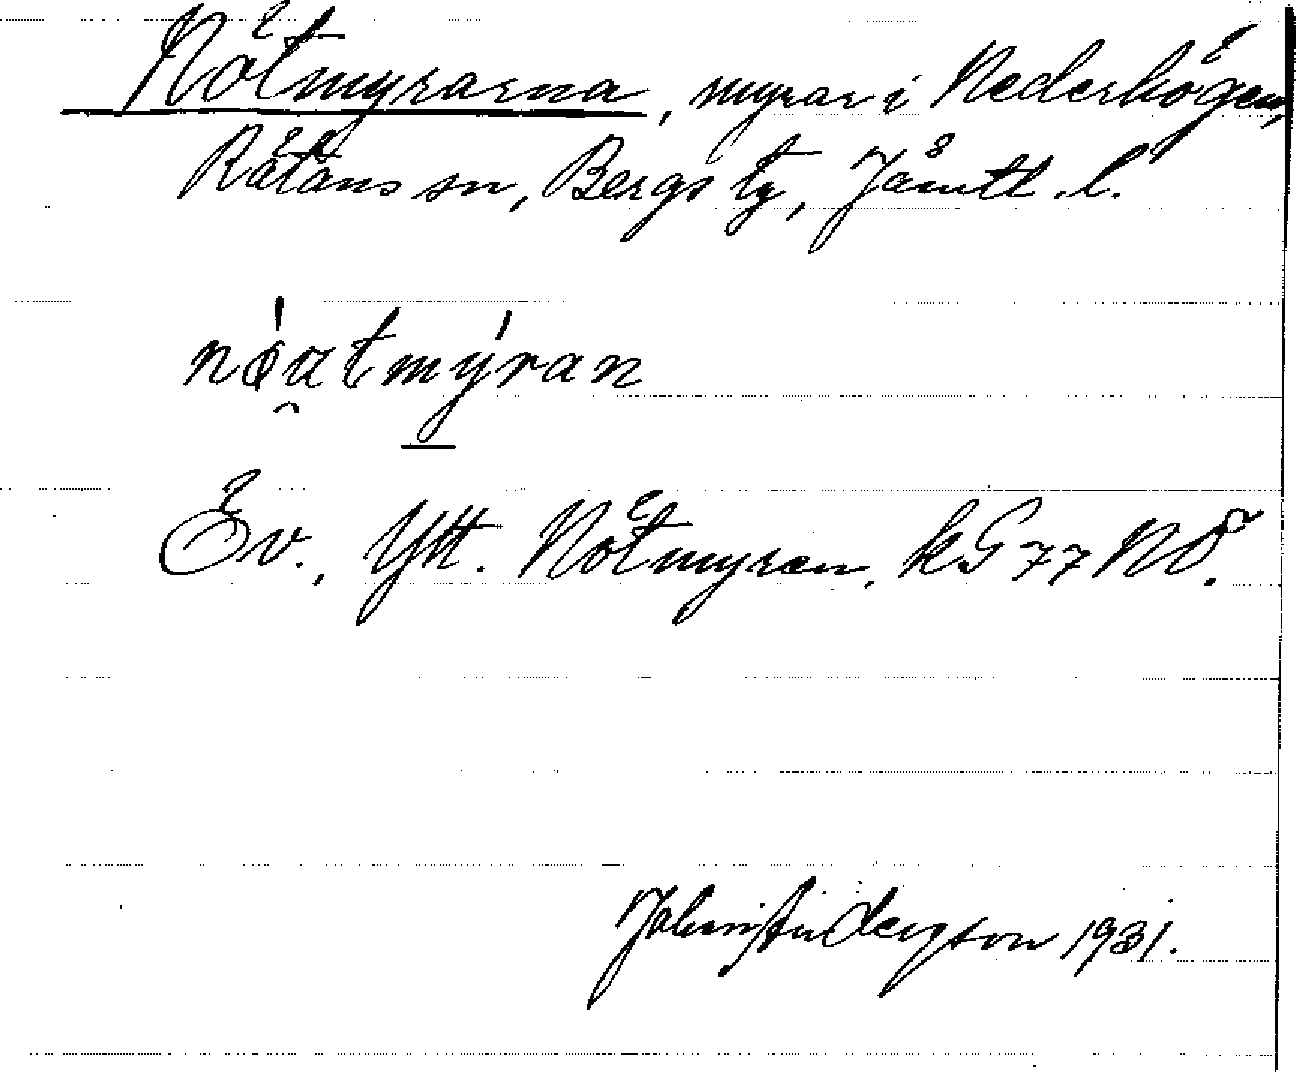 Nötmyrarna, myrar i Nederhögen,
Rätans sn, Bergs tg, Jämtl. l.
nǿatmýran
Ev., Ytt. Nötmyren, kG 77 NÖ.
John Anderzson 1931.